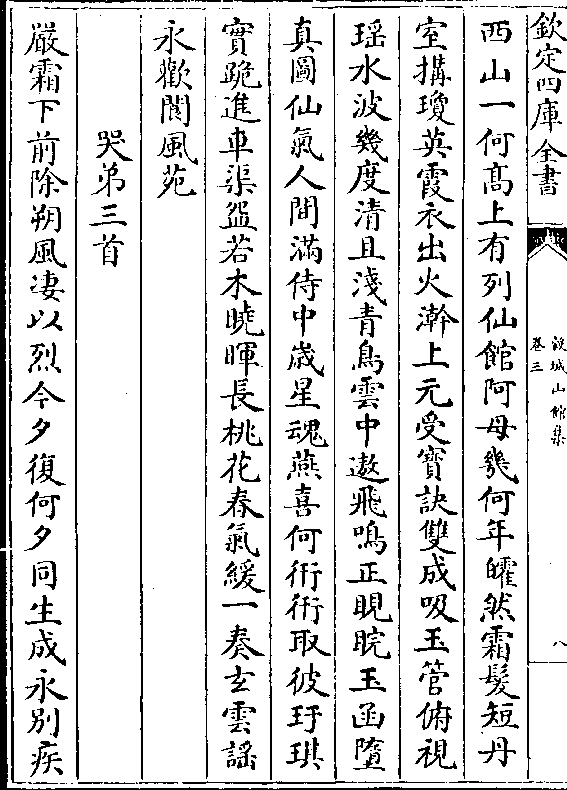 欽定四庫全書
穀城山館集
卷三
八
西山一何髙上有列仙館阿母幾何年皬然霜髮短丹
室搆瓊英霞衣出火澣上元受寶訣雙成吸玉管俯視
瑶水波幾度清且淺青鳥雲中遨飛鳴正睍睆玉函墮
真圖仙氣人間滿侍中歳星魂燕喜何衎衎取彼玗琪
實跪進車渠盌若木曉暉長桃花春氣緩一奏玄雲謡
永歡閬風苑
哭弟三首
嚴霜下前除朔風淒以烈今夕復何夕同生成永别疾